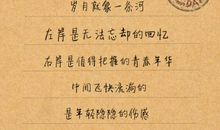 岁月就像一条河
左岸是无法忘却的回忆
右岸是值得把握的青春年华
中间飞快流淌的
是年轻隐隐的伤感